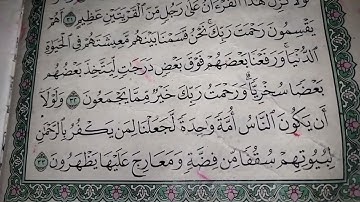 لَوْلَا نُزِّلَ هَٰذَا ٱلْقُرْءَانُ عَلَىٰ رَجُلٍ مِّنَ ٱلْقَرْيَتَيْنِ عَظِيمٍ ٣١ أَهُمْ
يَقْسِمُونَ رَحْمَتَ رَبِّكَ نَحْنُ قَسَمْنَا بَيْنَهُم مَّعِيشَتَهُمْ فِى ٱلْحَيَوٰةِ
ٱلدُّنْيَا وَرَفَعْنَا بَعْضَهُمْ فَوْقَ بَعْضٍ دَرَجَٰتٍ لِّيَتَّخِذَ بَعْضُهُم
بَعْضًا سُخْرِيًّا وَرَحْمَتُ رَبِّكَ خَيْرٌ مِّمَّا يَجْمَعُونَ ٣٢ وَلَوْلَآ
أَن يَكُونَ ٱلنَّاسُ أُمَّةً وَٰحِدَةً لَّجَعَلْنَا لِمَن يَكْفُرُ بِٱلرَّحْمَٰنِ
لِبُيُوتِهِمْ سُقُفًا مِّن فِضَّةٍ وَمَعَارِجَ عَلَيْهَا يَظْهَرُونَ ٣٣